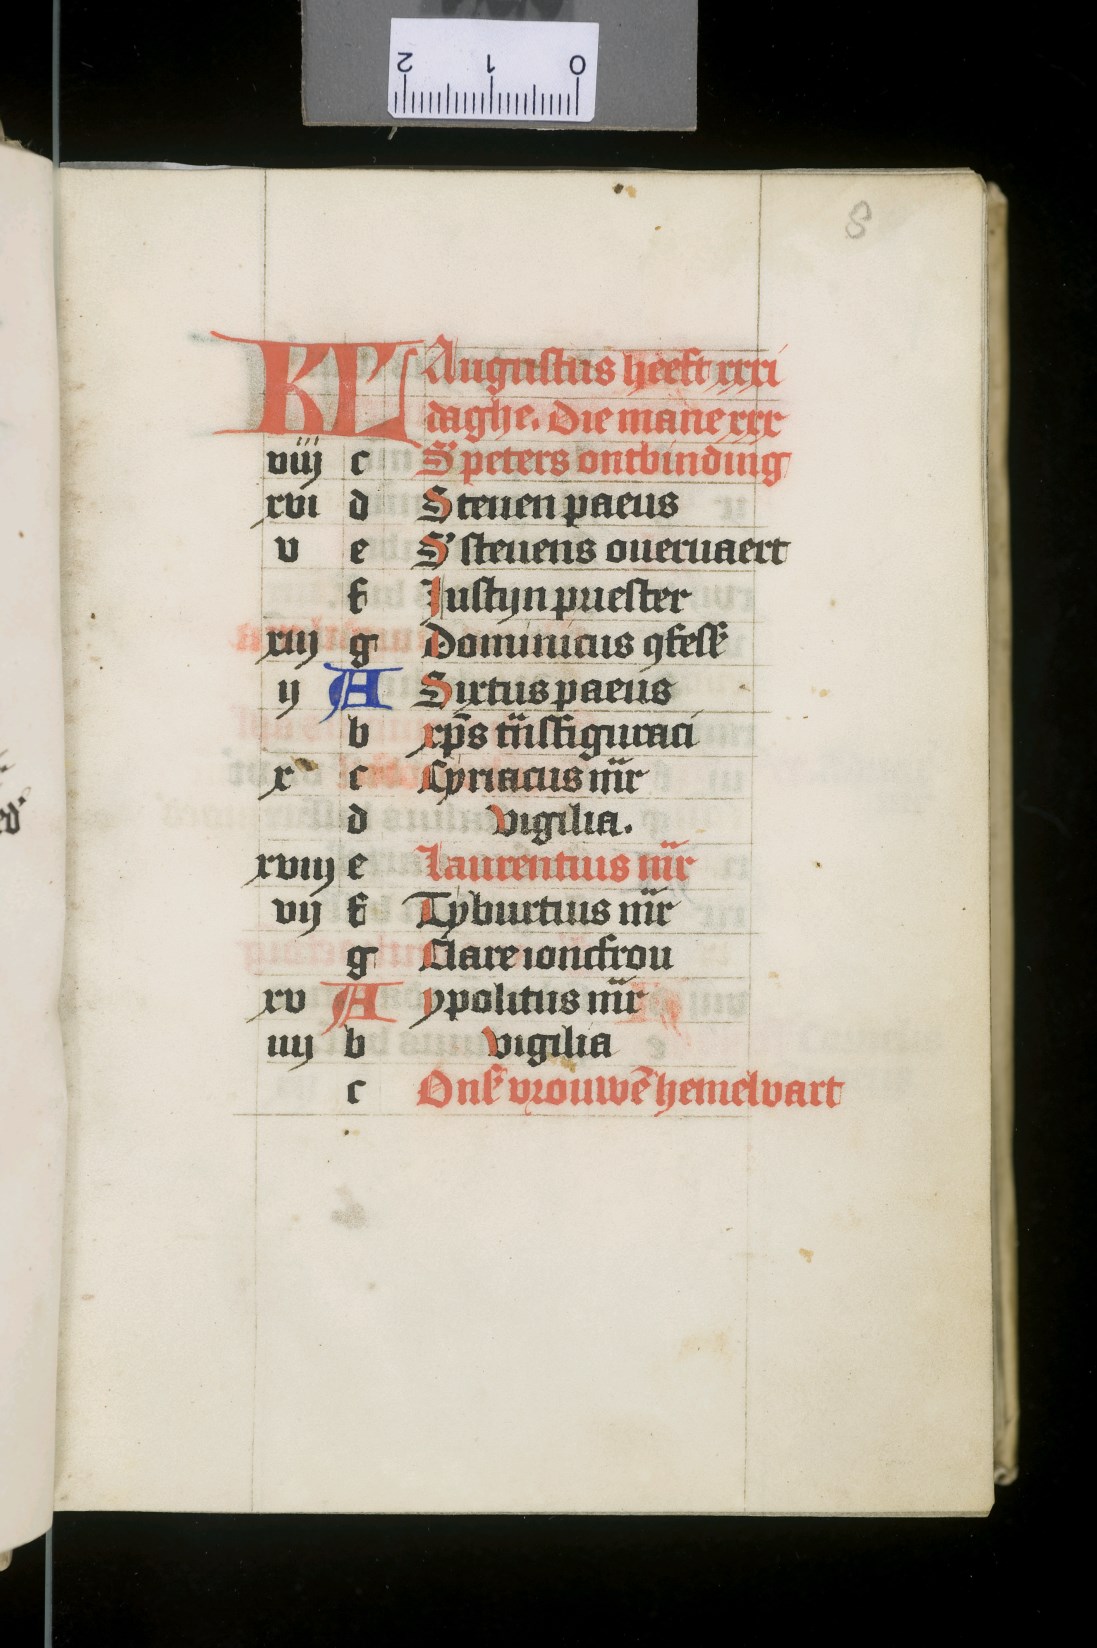 2 1 0
8
KL Augustus heeft xxxi
daghe. Die mane xxx
viij c S' peters ontbinding
xvi d Steuen paeus
v e S' steuens oueruaert
f Iustyn priester
xiij g Dominicus ꝯfess'
ij A Sixtus paeus
b xp̄s trāsfiguraci
x c Cyriacus m̄r
d vigilia.
xviij e Laurentius m̄r
vij f Tyburtius m̄r
g Clare ioncfrou
xv A ypolitus m̄r
iiij b vigilia
c Ons' vrouwē hemelvart